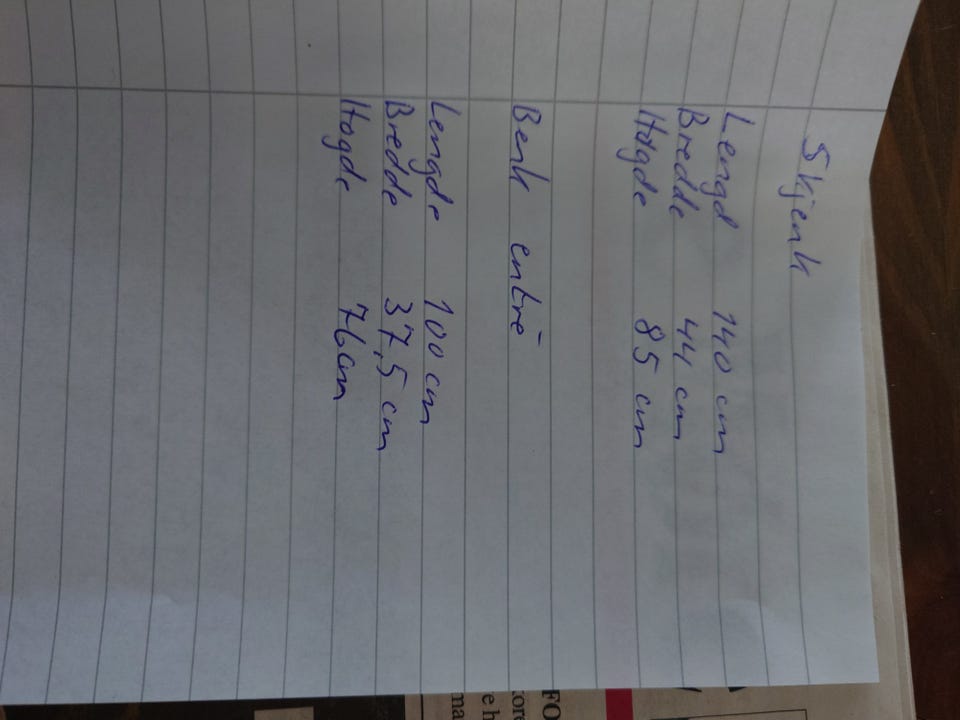 Skjenk
Lengd 140 cm
Bredde 44 cm
Høgde 85 cm
Benk entrè
Lengde 100 cm
Bredde 37,5 cm
Høgde 76 cm
FO
tore
e h
ma